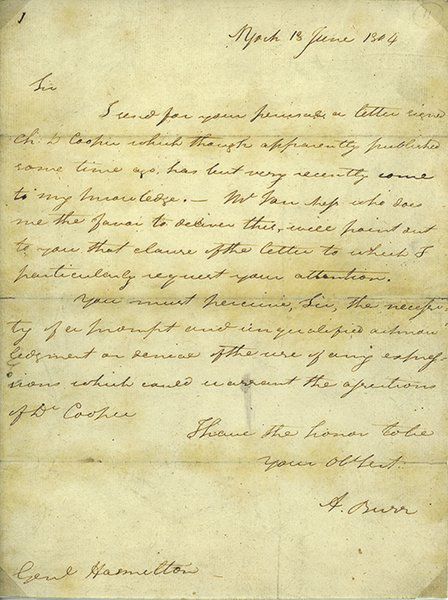 1
N York 18 June 1804
Sir
I send for your perusal a letter signed
Ch. D Cooper which though apparently published
some time ago, has but very recently come
to my knowledge. — Mr Van Ness who does
me the favor to deliver this, will point out
to you that clause of the letter to which I
particularly request your attention.
You must perceive, Sir, the necessi-
ty of a prompt and unqualified acknow
ledgment or denial of the use of any expres-
sions which could warrant the assertions
of Dr Cooper
I have the honor to be
Your Ob st
A. Burr
Genl Hamilton